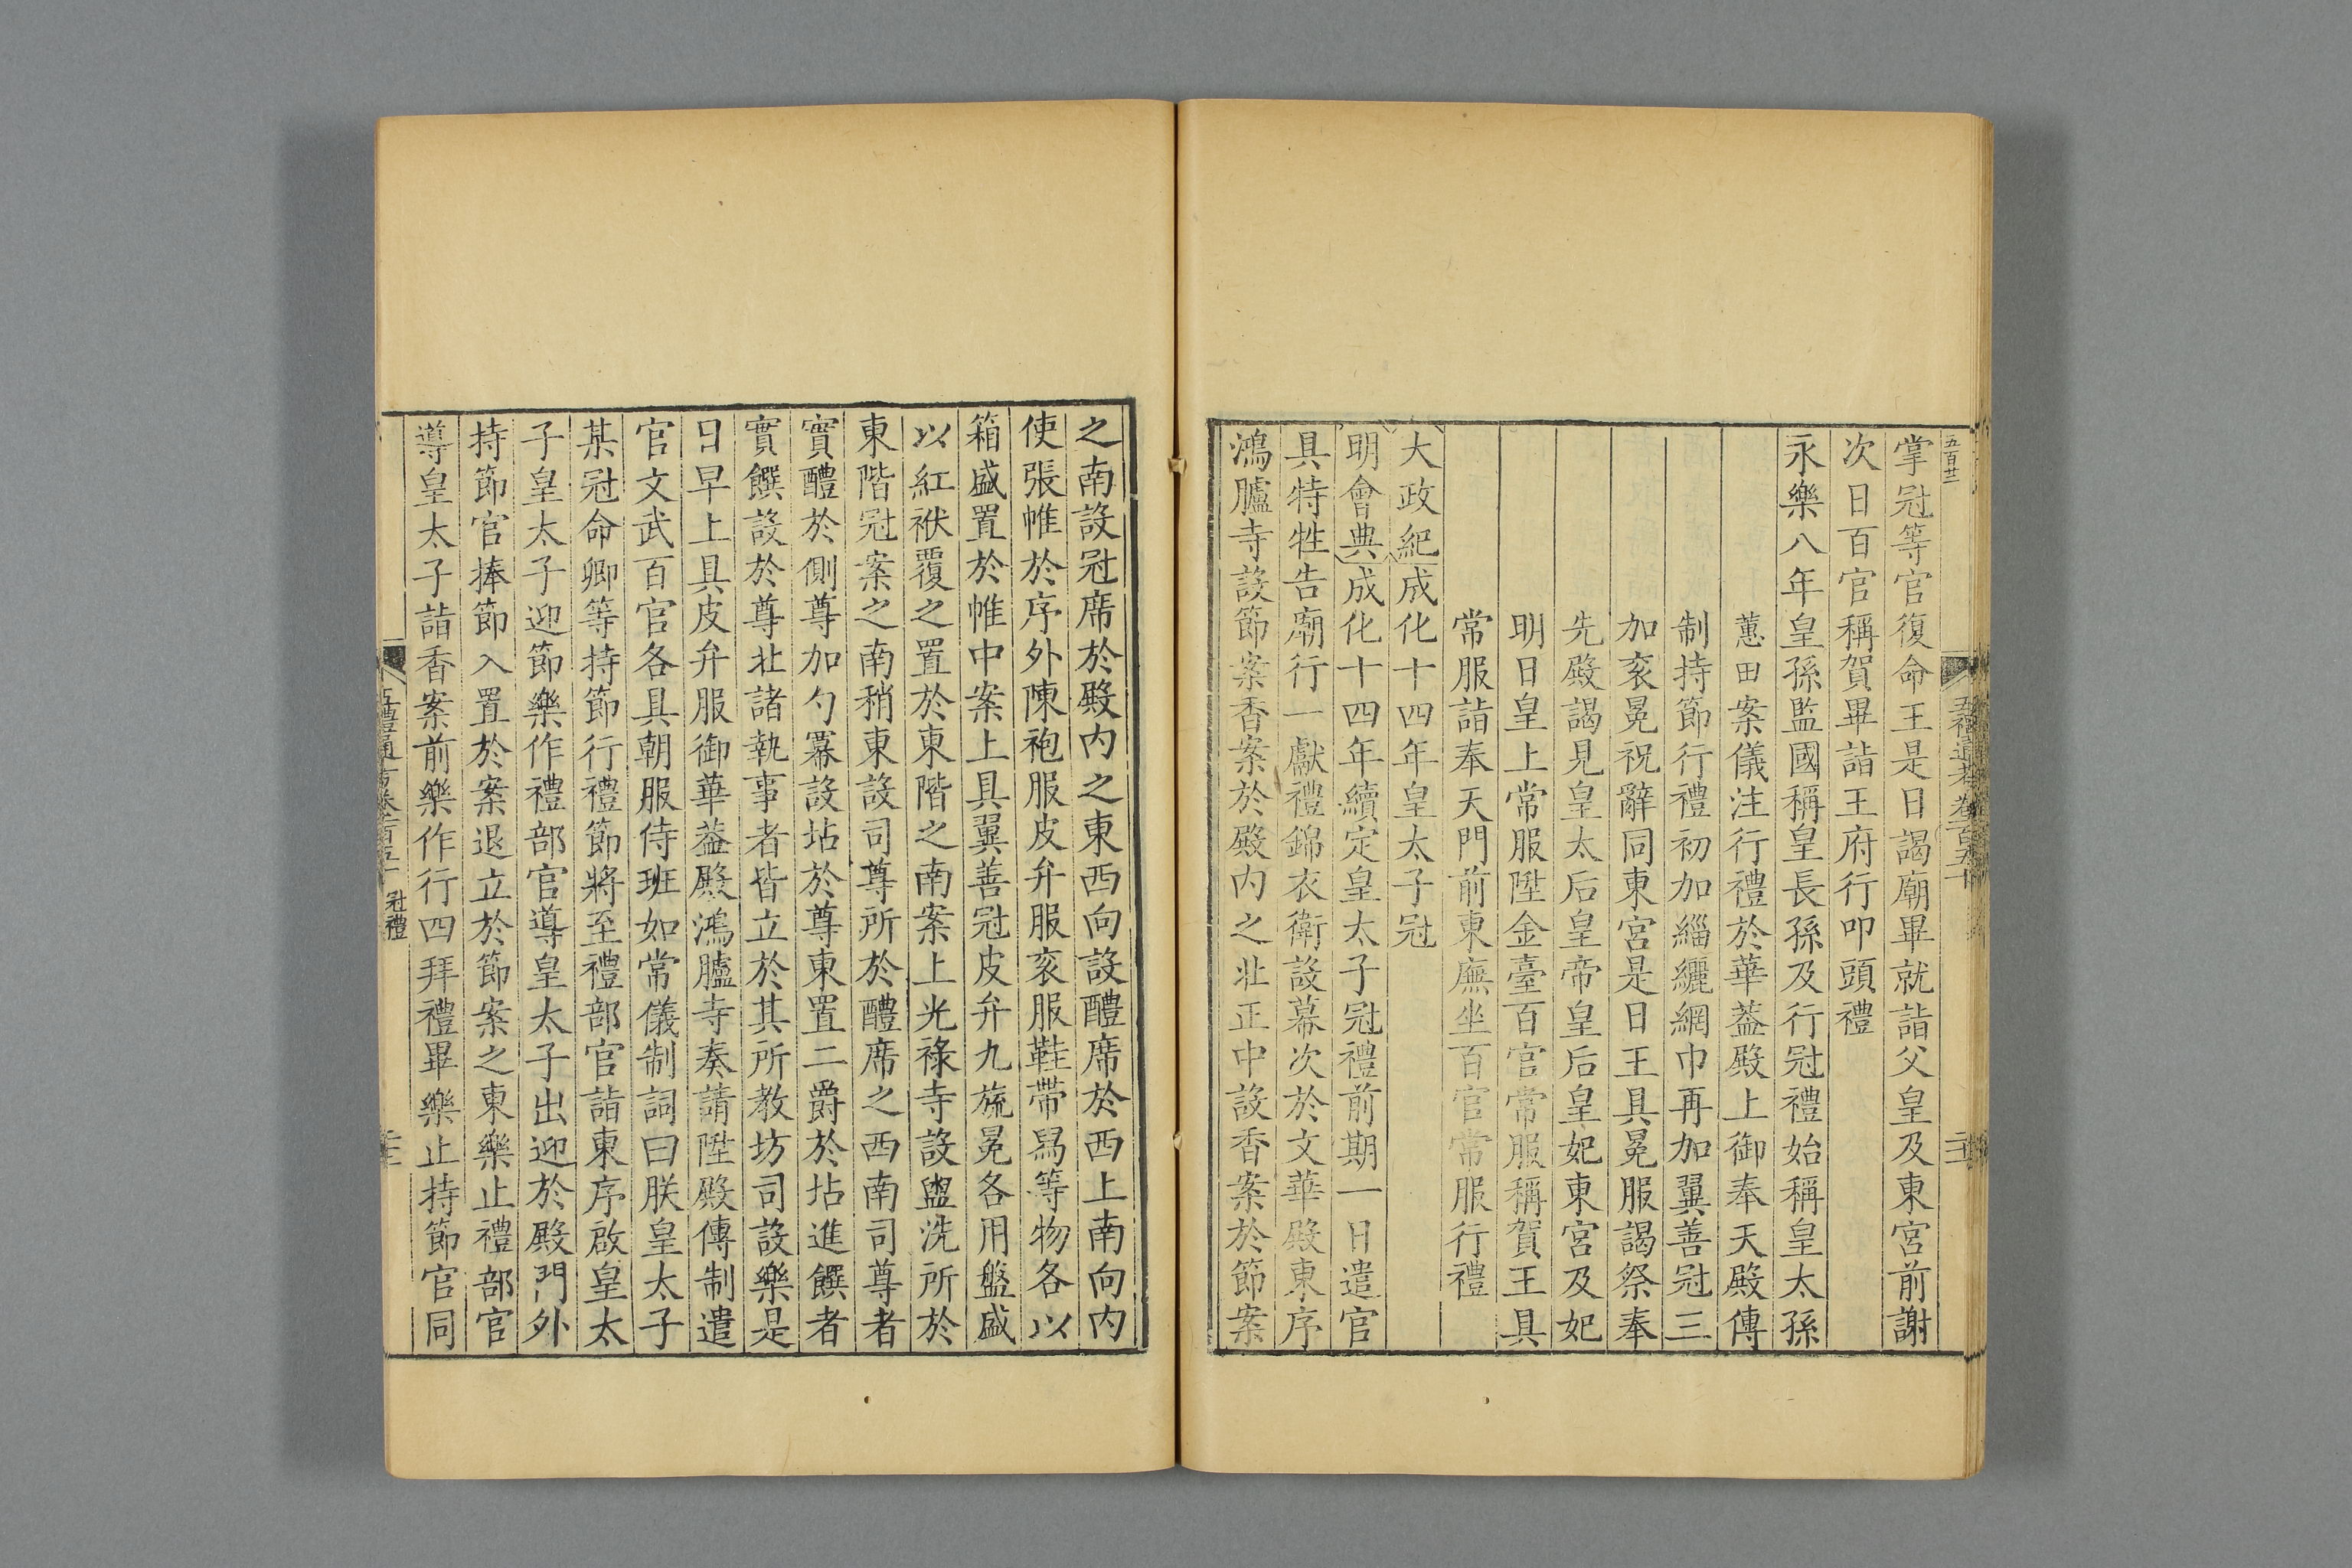 五百廿二
掌冠等官復命王是日謁廟畢就詣父皇及東宮前謝
次日百官稱賀畢詣王府行叩頭禮
永樂八年皇孫監國稱皇長孫及行冠禮始稱皇太孫
蕙田案儀注行禮於華葢殿上御奉天殿傳
制持節行禮初加緇纚網巾再加翼善冠三
加衮冕祝辭同東宮是日王具冕服謁祭奉
先殿謁見皇太后皇帝皇后皇妃東宮及妃
明日皇上常服陞金臺百官常服稱賀王具
常服詣奉天門前東廡坐百官常服行禮
大政紀成化十四年皇太子冠
明會典成化十四年續定皇太子冠禮前期一日遣官
具特牲告廟行一獻禮錦衣衛設幕次於文華殿東序
鴻臚寺設節案香案於殿內之北正中設香案於節案
之南設冠席於殿內之東西向設醴席於西上南向內
使張帷於序外陳袍服皮弁服衮服鞋帶舄等物各以
箱盛置於帷中案上具翼善冠皮弁九旒冕各用盤盛
以紅袱覆之置於東階之南案上光祿寺設盥洗所於
東階冠案之南稍東設司尊所於醴席之西南司尊者
實醴於側尊加勺冪設坫於尊東置二爵於坫進饌者
實饌設於尊北諸執事者皆立於其所教坊司設樂是
日早上具皮弁服御華葢殿鴻臚寺奏請陞殿傳制遣
官文武百官各具朝服侍班如常儀制詞曰朕皇太子
某冠命卿等持節行禮節將至禮部官詣東序啟皇太
子皇太子迎節樂作禮部官導皇太子出迎於殿門外
持節官捧節入置於案退立於節案之東樂止禮部官
導皇太子詣香案前樂作行四拜禮畢樂止持節官同
冠禮